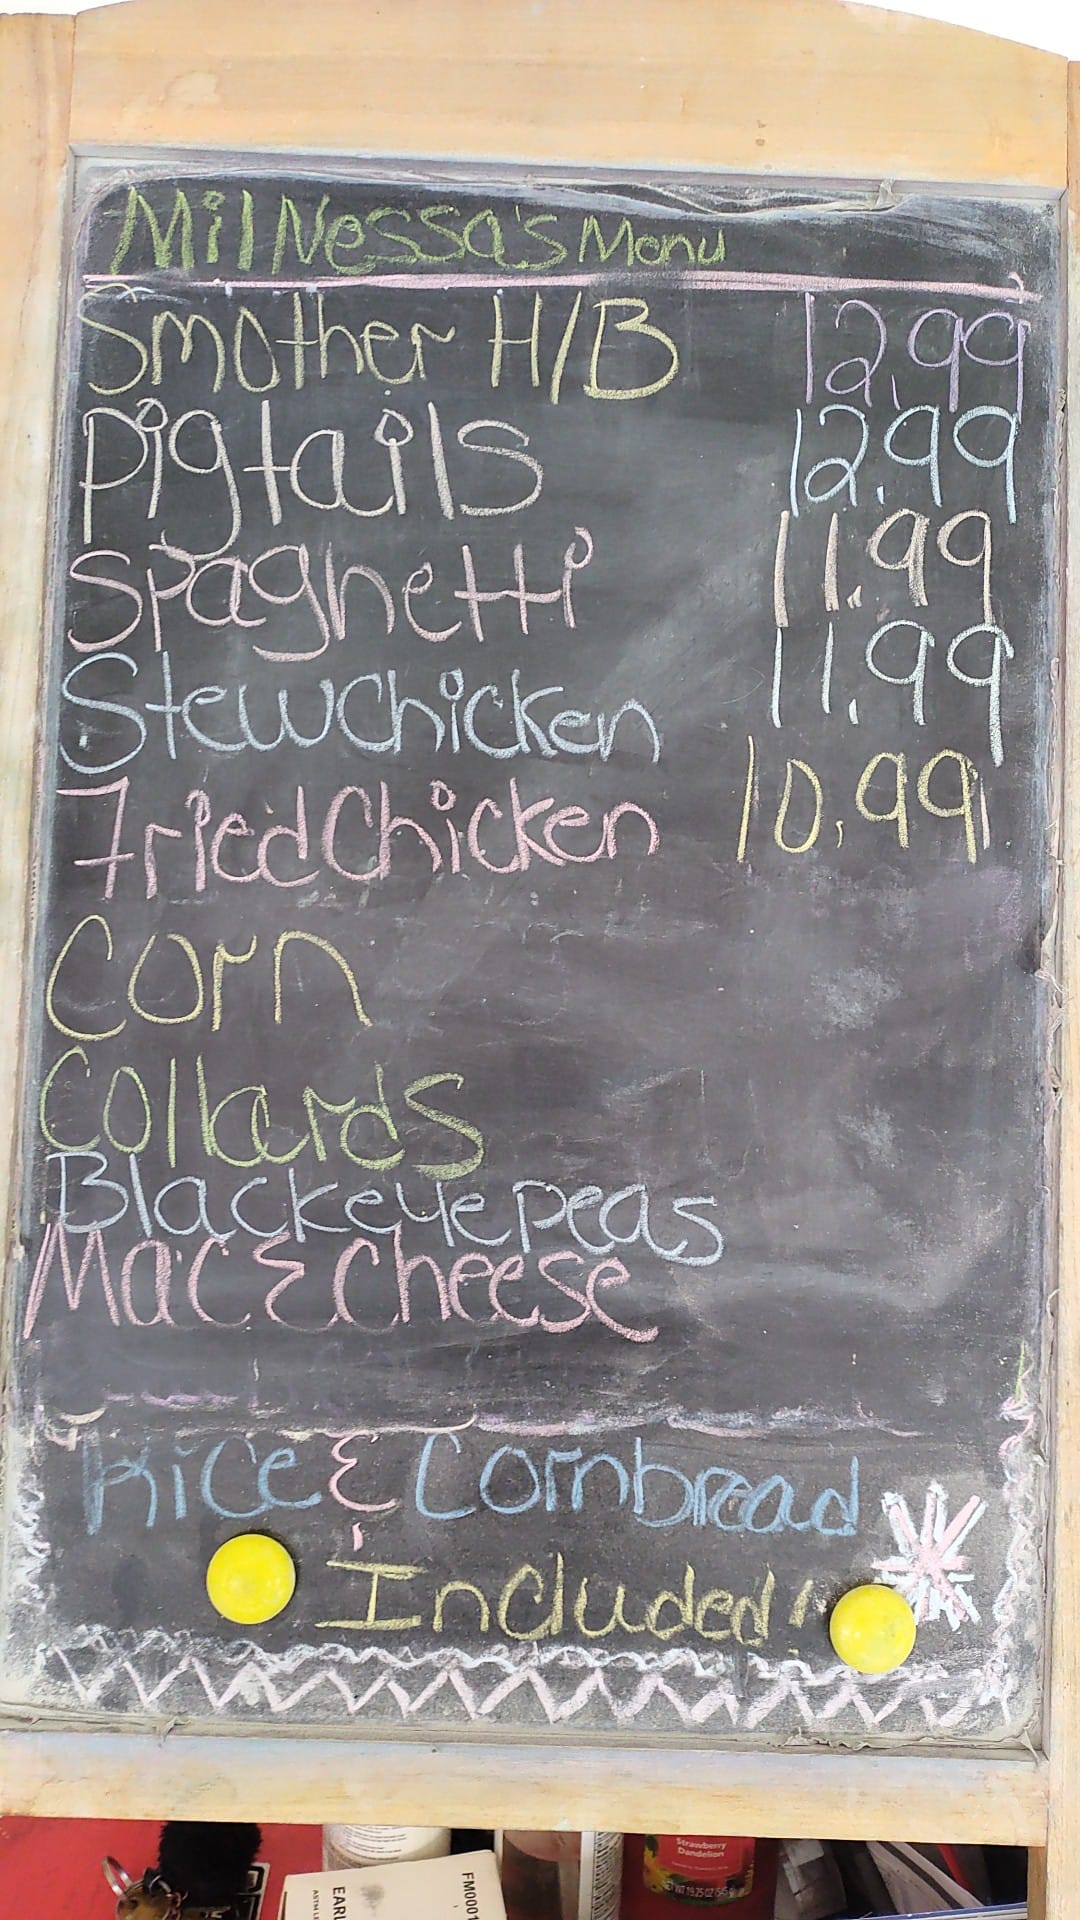 Mil Nessa's Menu
Smother H/B 12.99
pigtails 12.99
Spaghetti 11.99
Stew Chicken 11.99
Fried Chicken 10.99
Corn
Collards
Blackeye peas
Mac & Cheese
Rice & Cornbread
Included!
Strawberry
Dandelion
NET WT 19.25 OZ
FM0001
EARL